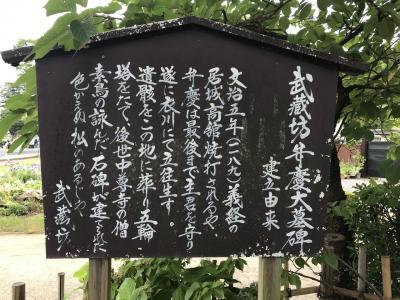 武蔵坊弁慶大墓碑
建立由来
文治五年(一一八九)義経の
居城高館焼打されるや
弁慶は最後まで主君を守り
遂に衣川にて立往生す。
遺骸をこの地に葬り五輪
塔をたて後世中尊寺の僧
素鳥の詠んだ石碑が建てられた
色かえぬ松のあるじや
武蔵坊